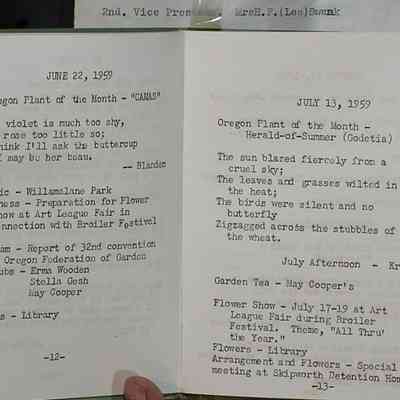 2nd. Vice Pres MrsH.F.(Lee)Swunk
JUNE 22, 1959
egon Plant of the Month - "CAMAS"
violet is much too shy,
rose too little so;
hink I'll ask the buttercup
f may be her beau.
-- Blanden
ic - Willamalane Park
ness - Preparation for Flower
how at Art League Fair in
onnection with Broiler Festival
am - Report of 32nd convention
Oregon Federation of Garden
ubs - Erma Wooden
Stella Gesh
May Cooper
s - Library
-12-
JULY 13, 1959
Oregon Plant of the Month -
Herald-of-Summer (Godetia)
The sun blazed fiercely from a
cruel sky;
The leaves and grasses wilted in
the heat;
The birds were silent and no
butterfly
Zigzagged across the stubbles of
the wheat.
July Afternoon - Kr
Garden Tea - May Cooper's
Flower Show - July 17-19 at Art
League Fair during Broiler
Festival. Theme, "All Thru'
the Year."
Flowers - Library
Arrangement and Flowers - Special
meeting at Skipworth Detention Hom
-13-